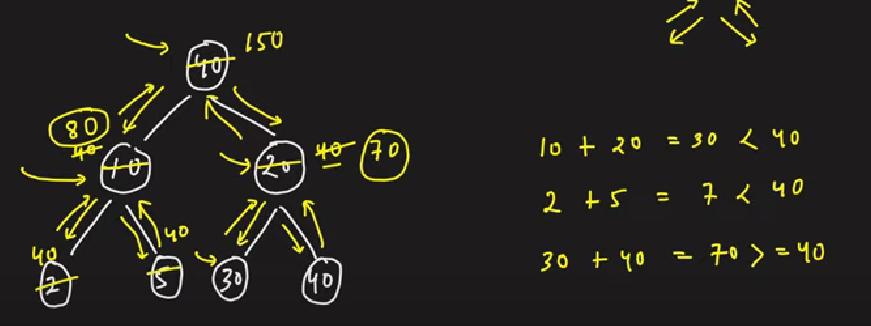 40 150
80
40
10 20 40 70
40 40
2 5 30 40
10 + 20 = 30 < 40
2 + 5 = 7 < 40
30 + 40 = 70 >= 40